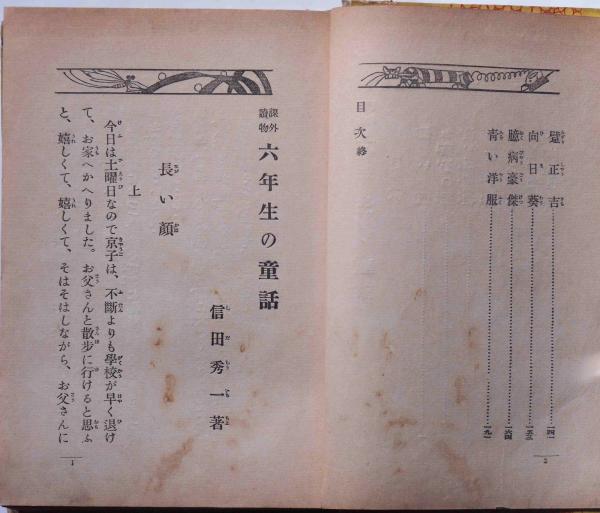 躄正吉……………………一四一
向日葵……………………一五三
臆病豪傑…………………一六四
靑い洋服…………………一九一
目次終
2
課外讀物 六年生の童話
信田秀一著
長い顏
上
今日は土曜日なので京子は、不斷よりも學校が早く退け
て、お家へかへりました。お父さんと散步に行けると思ふ
と、嬉しくて、嬉しくて、そはそはしながら、お父さんに
1